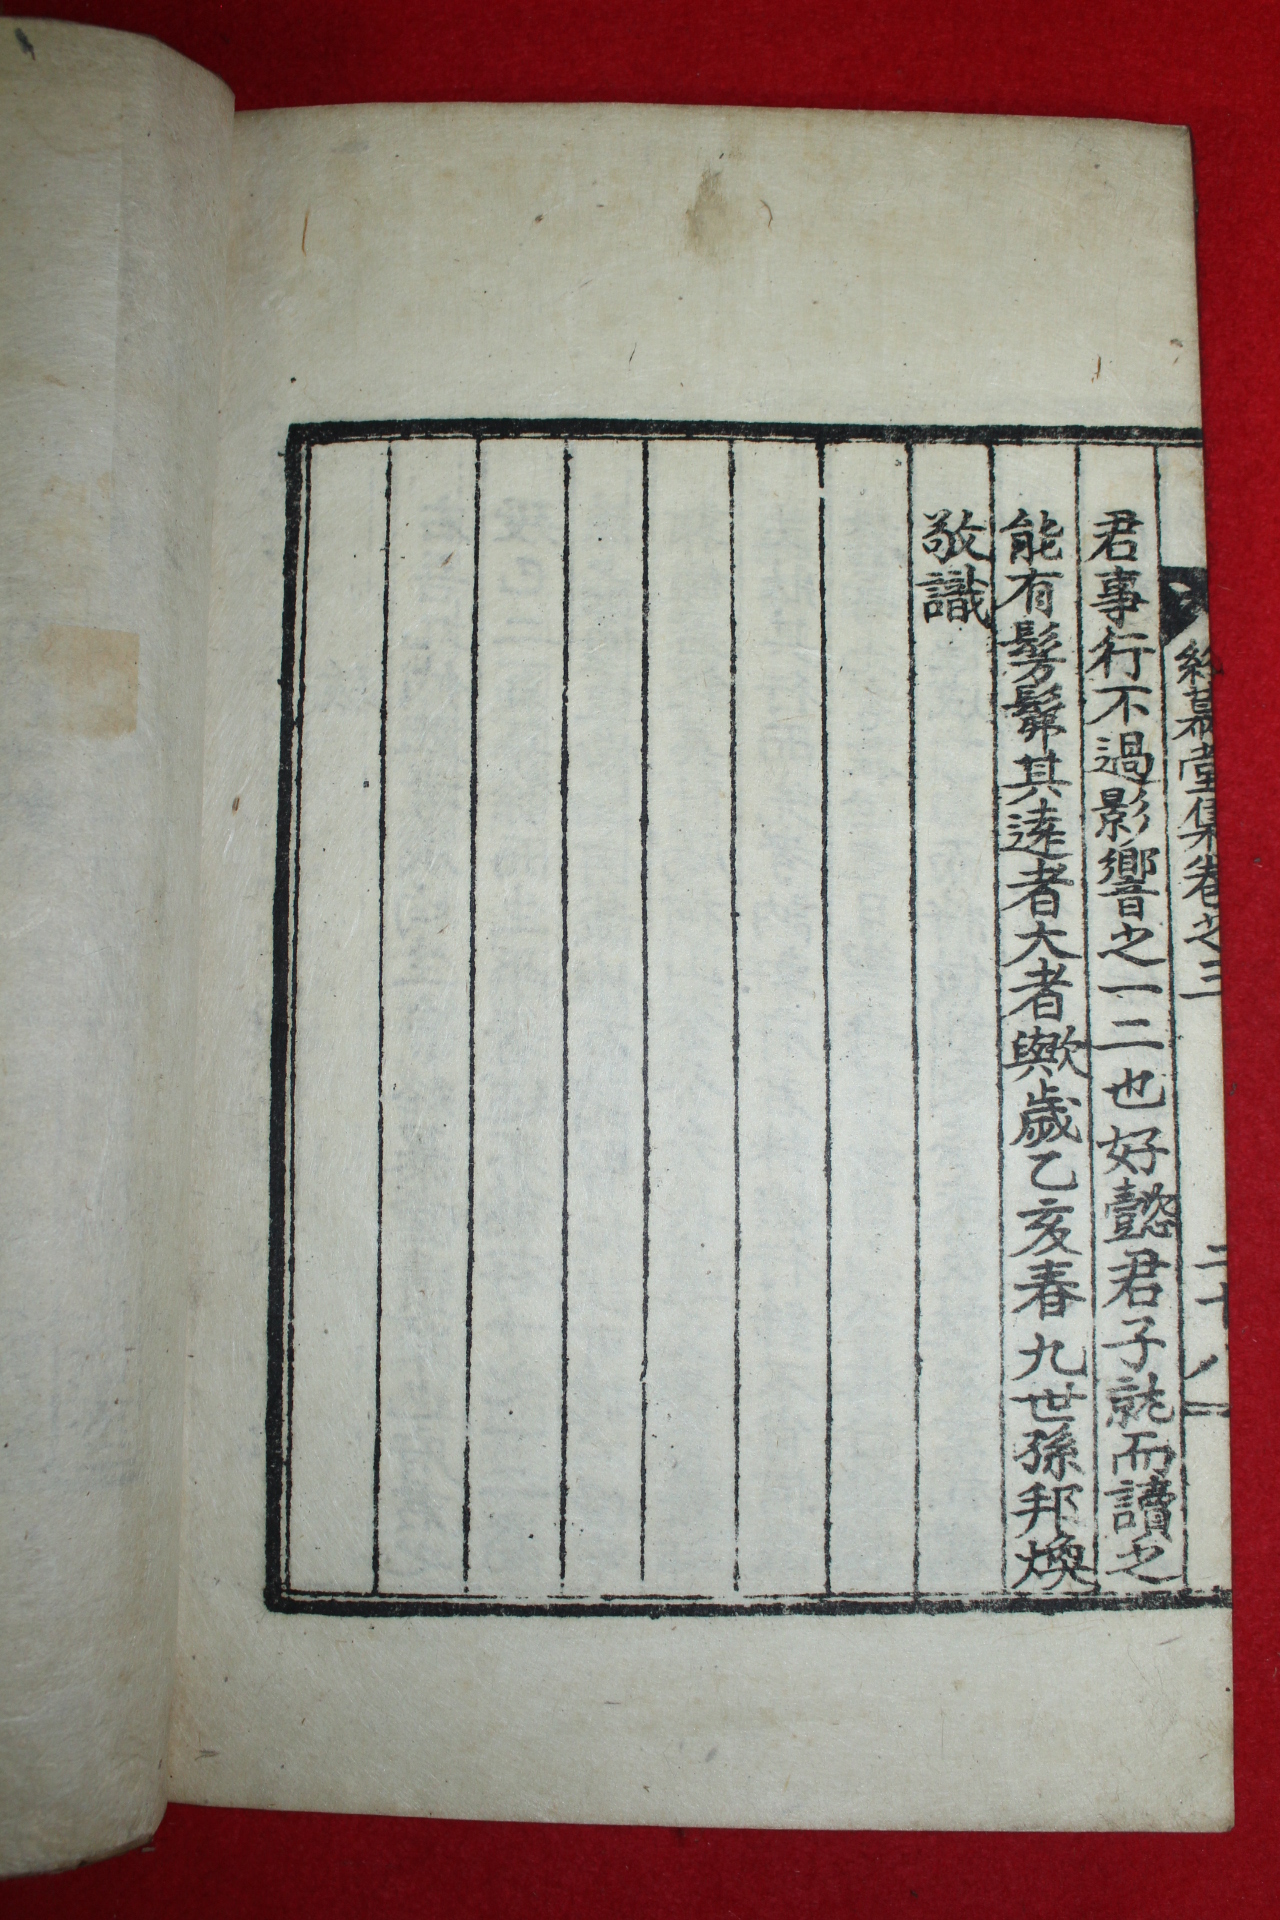 終慕堂集卷之三 二十八
君事行不過影響之一二也好懿君子就而讀之
能有髣髴其逺者大者歟歲乙亥春九世孫邦煥
敬識